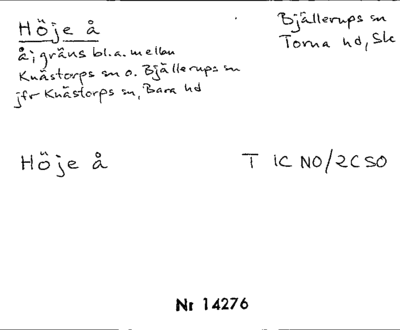 Höje å
Bjällerups sn
Torna hd, Sk
å; gräns bl.a. mellan
Knästorps sn o. Bjällerups sn
jfr Knästorps sn, Bara hd
Höje å
T 1C NO/2C SO
Nr 14276